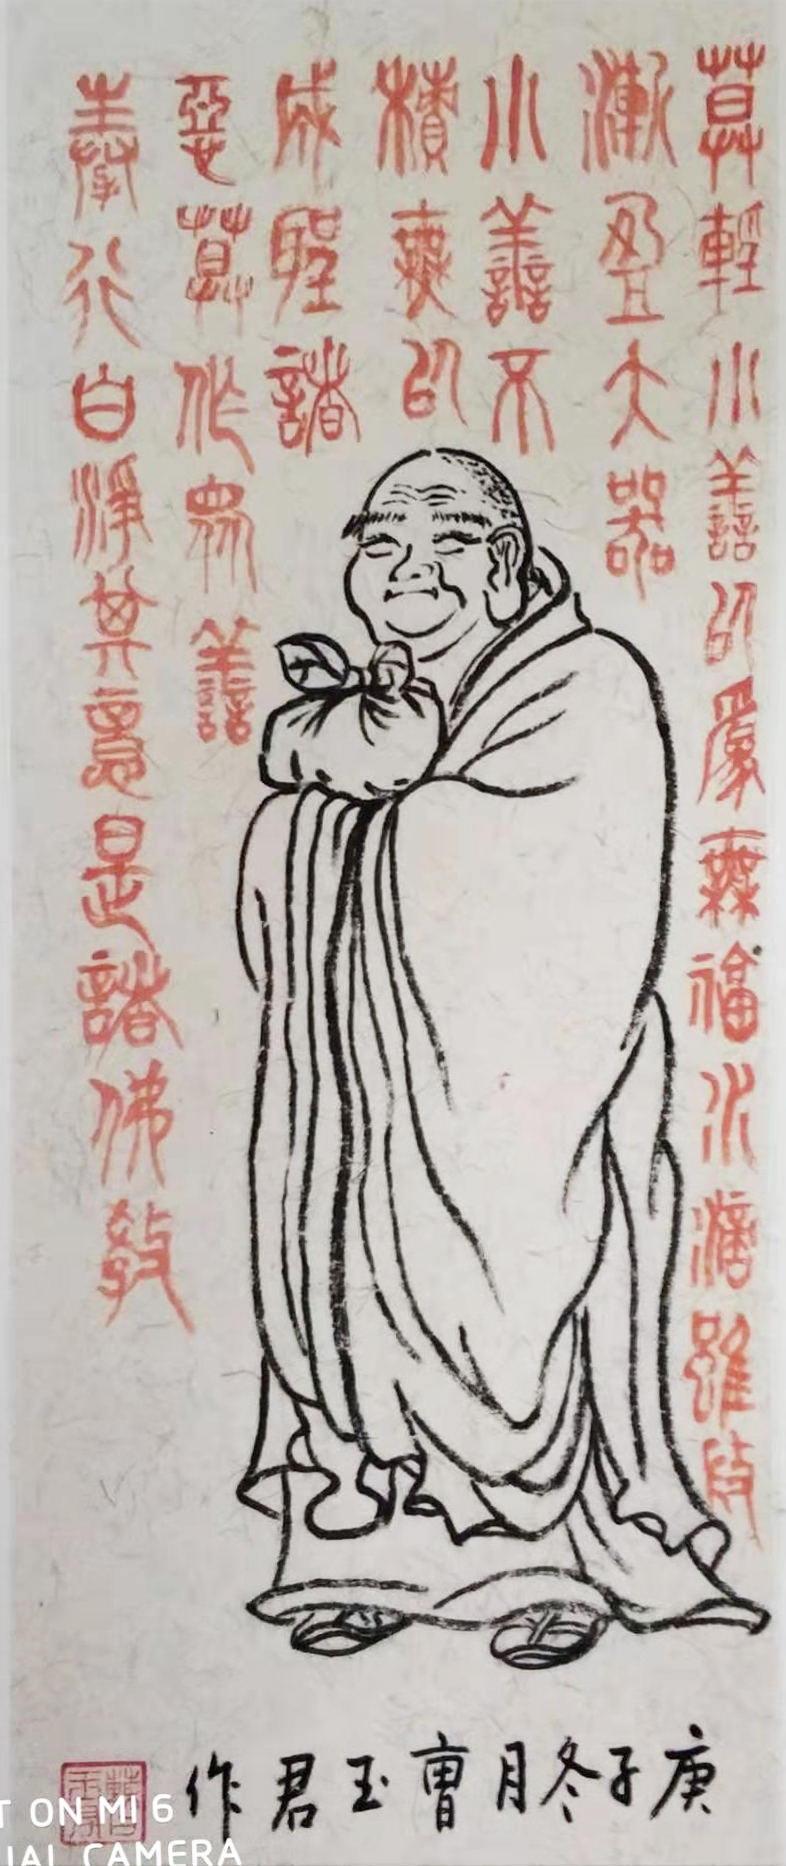 莫輕小善以為無福水滴雖微
漸盈大器
小善不
積無以
成聖諸
惡莫作眾善
奉行自淨其意是諸佛教
庚子冬月曹玉君作
ON MI 6
CAMERA